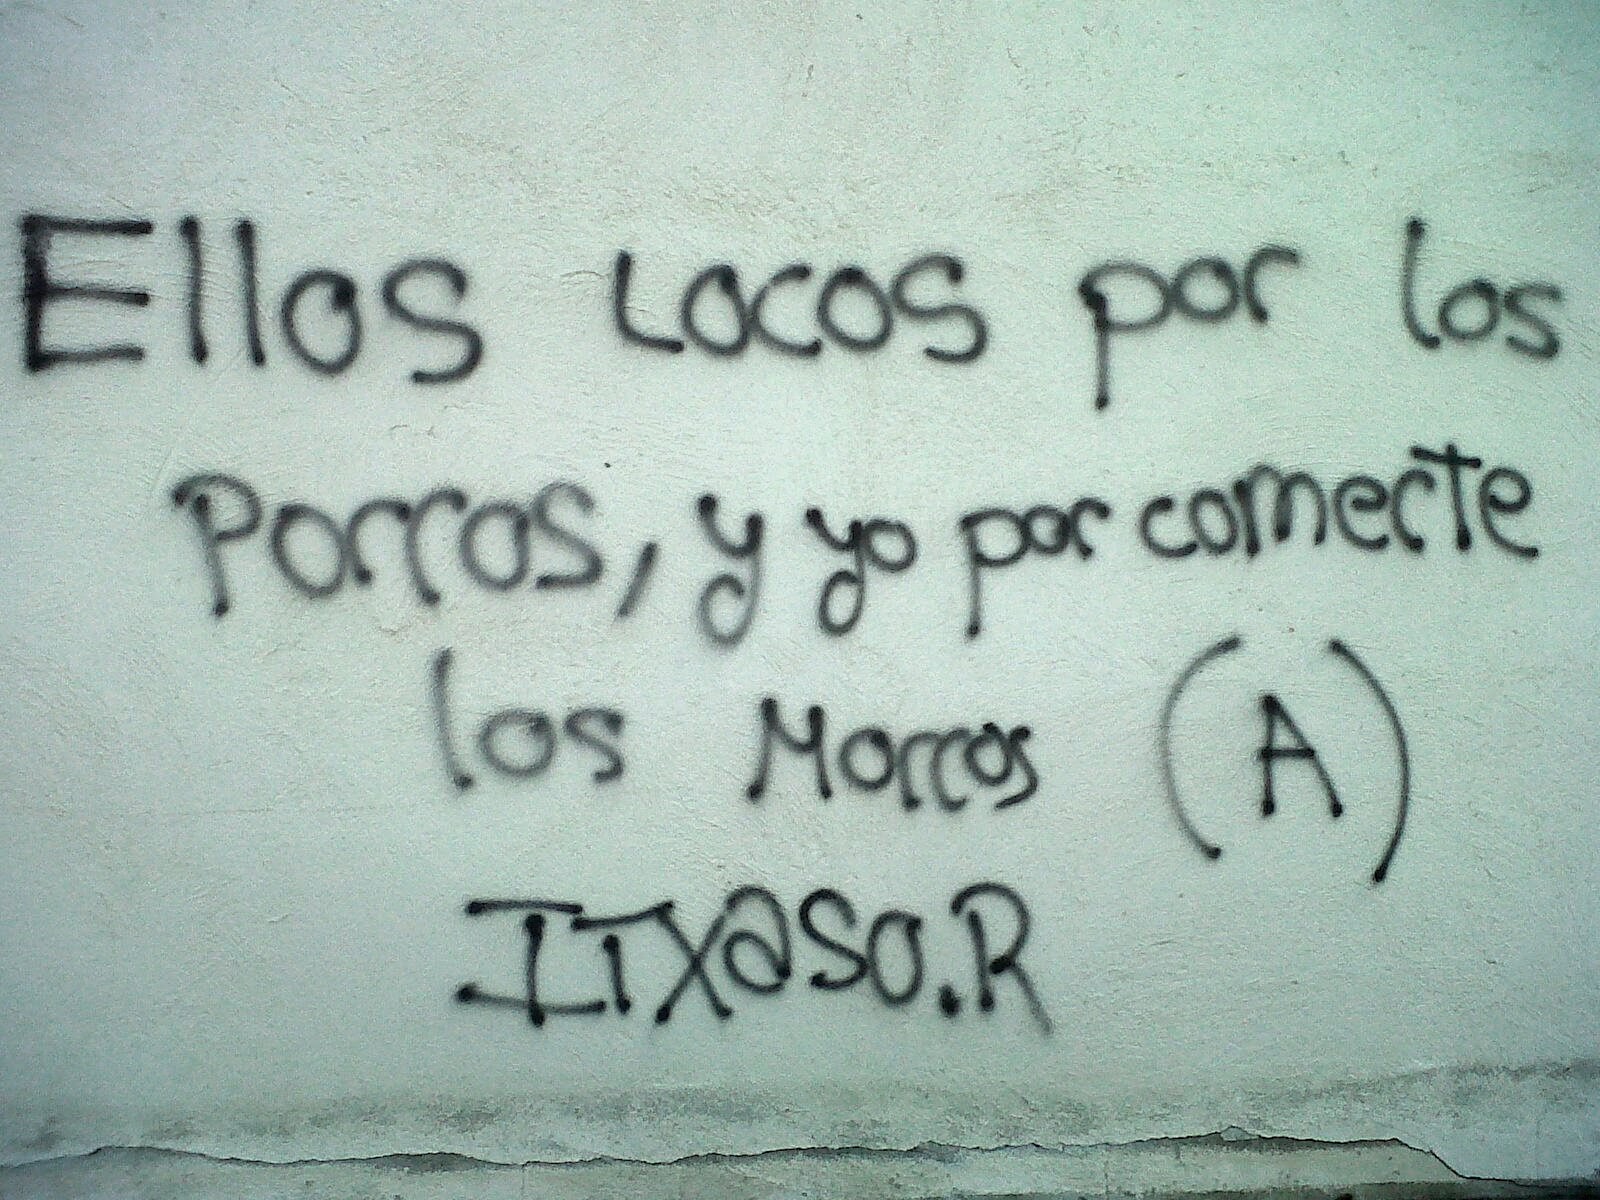 Ellos Locos por los
Porros, y yo por comerte
los Morros (A)
ITXASO.R